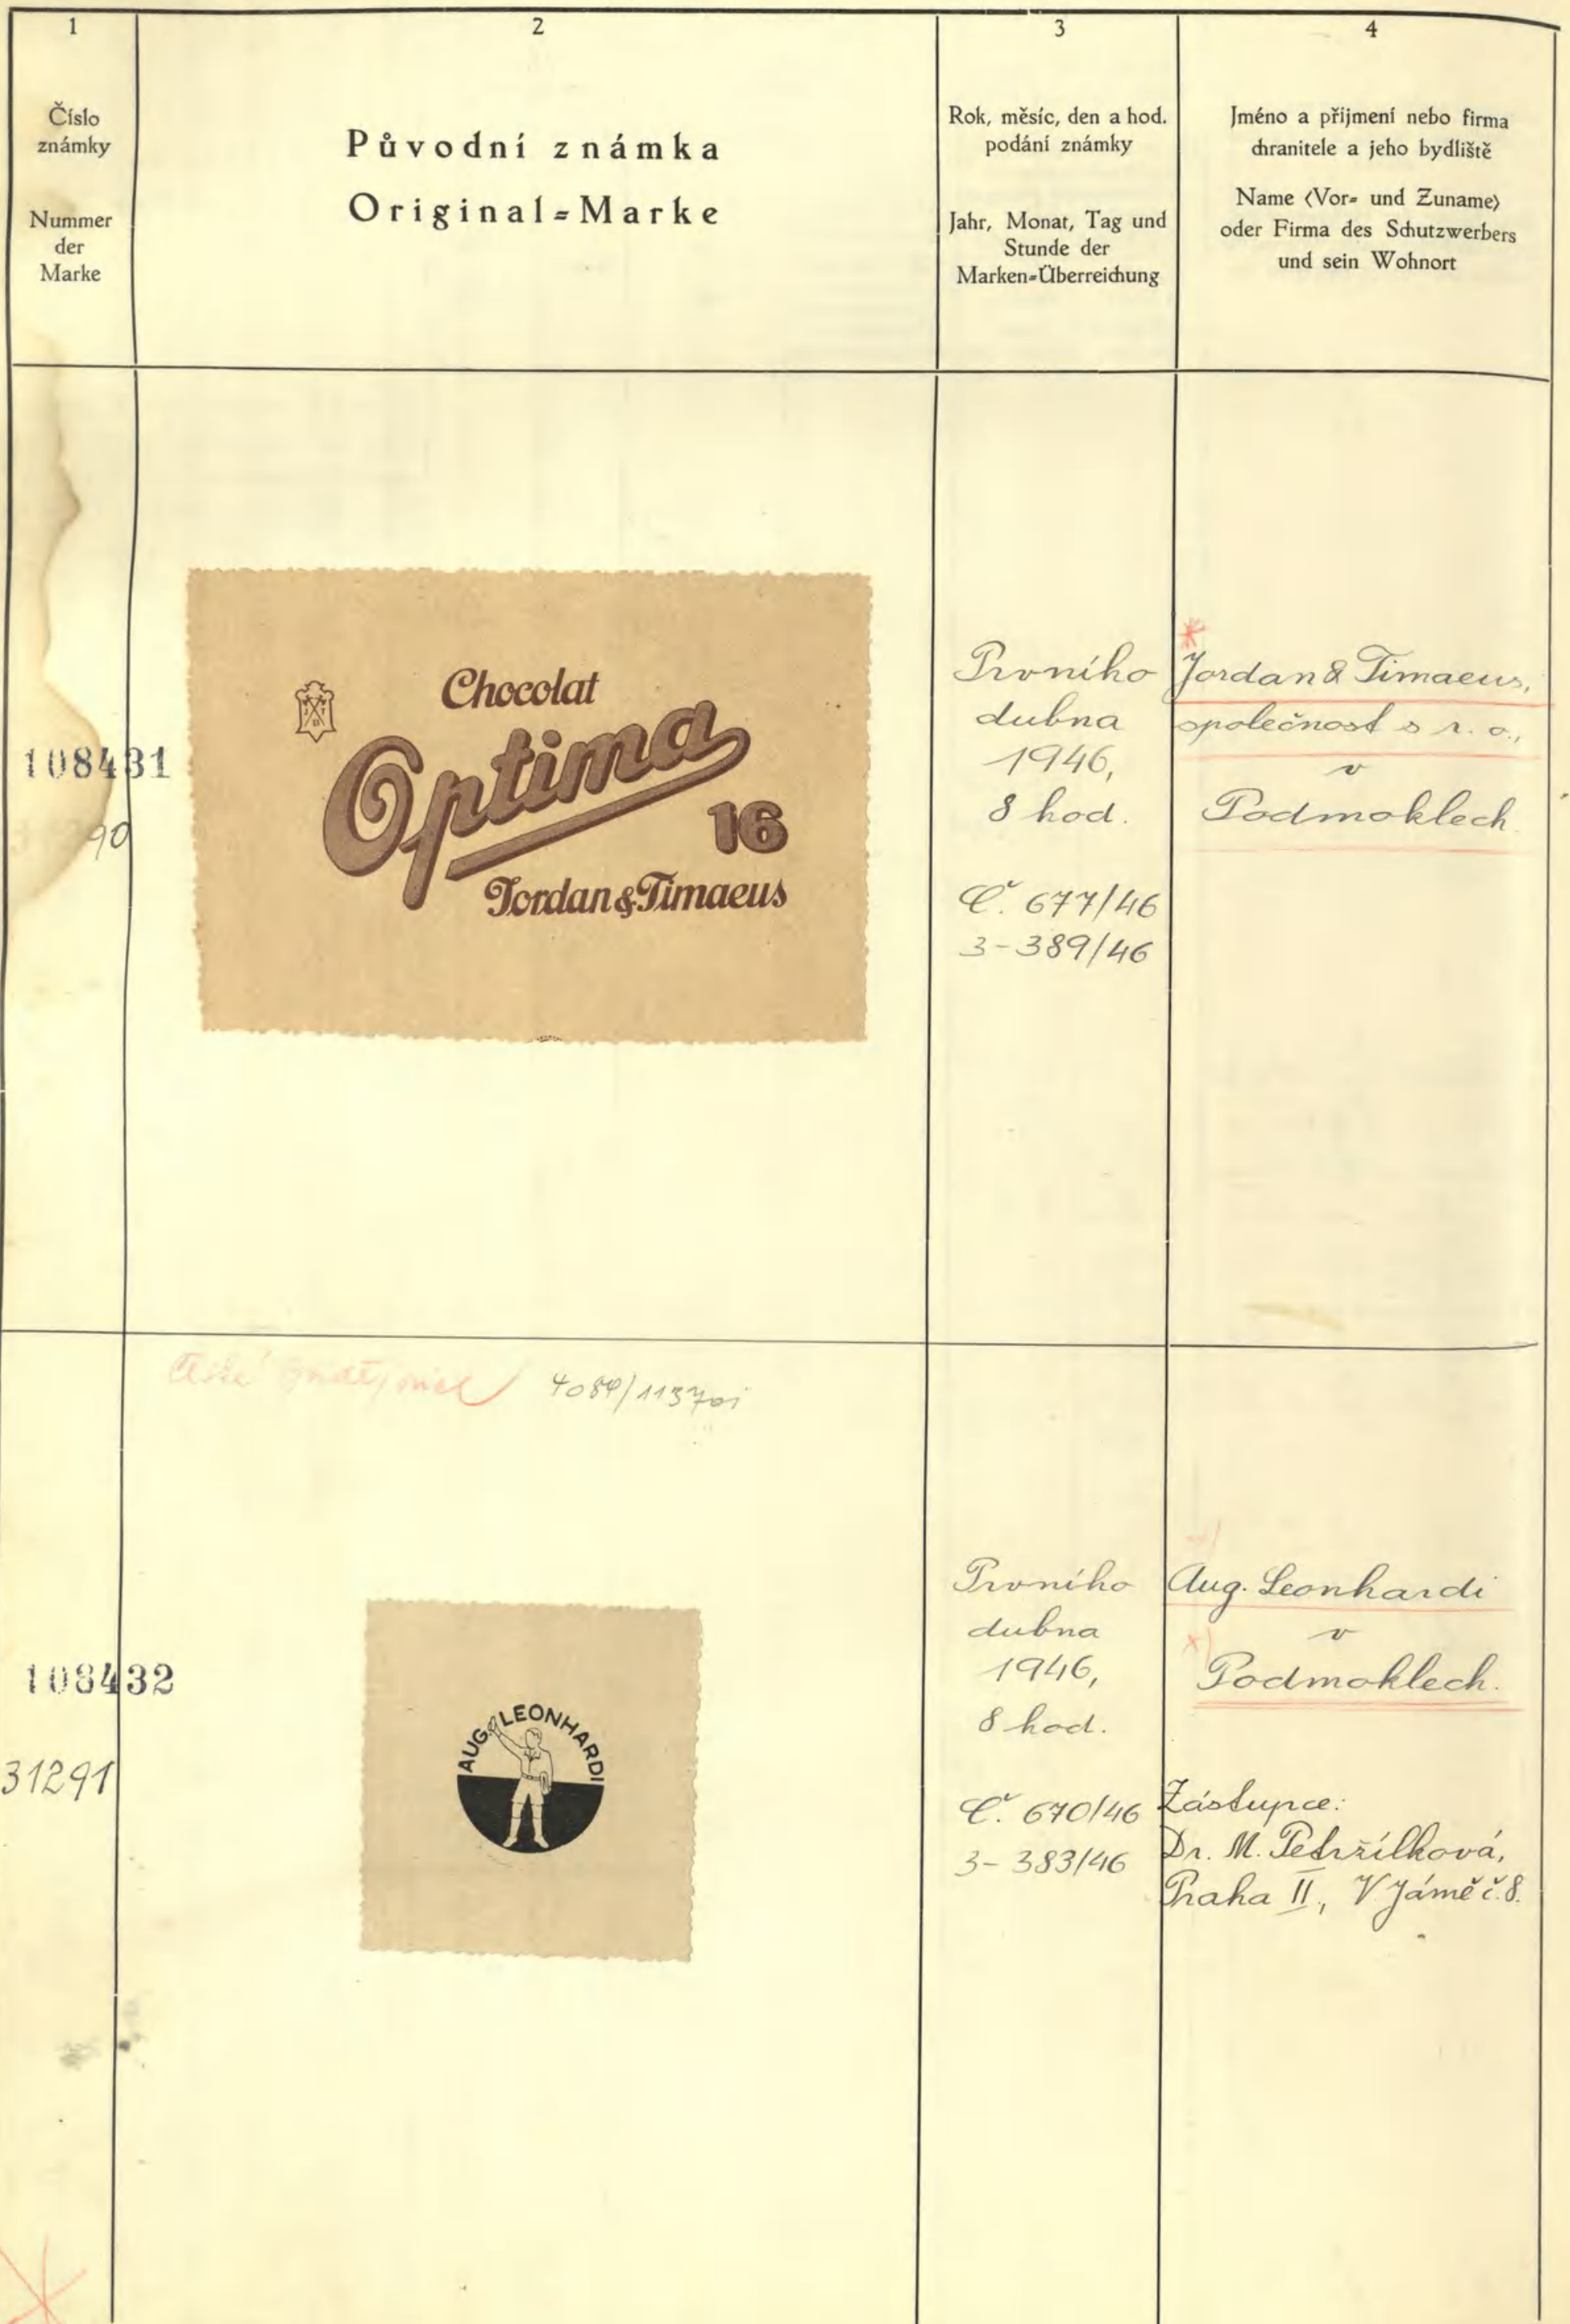 1
Číslo
známky
Nummer
der
Marke
2
Původní známka
Original=Marke
3
Rok, měsíc, den a hod.
podání známky
Jahr, Monat, Tag und
Stunde der
Marken=Überreichung
4
Jméno a přijmení nebo firma
chranitele a jeho bydliště
Name (Vor= und Zuname)
oder Firma des Schutzwerbers
und sein Wohnort
108431
90
Chocolat
Optima
16
Jordan & Timaeus
Prvního
dubna
1946,
8 hod.
Č. 677/46
3-389/46
Jordan & Timaeus,
společnost s r. o.,
v
Podmoklech
108432
31291
AUG. LEONHARDI
Prvního
dubna
1946,
8 hod.
Č. 670/46
3-383/46
Aug. Leonhardi
v
Podmoklech.
Zástupce:
Dr. M. Petržílková,
Praha II., V Jámě č. 8.